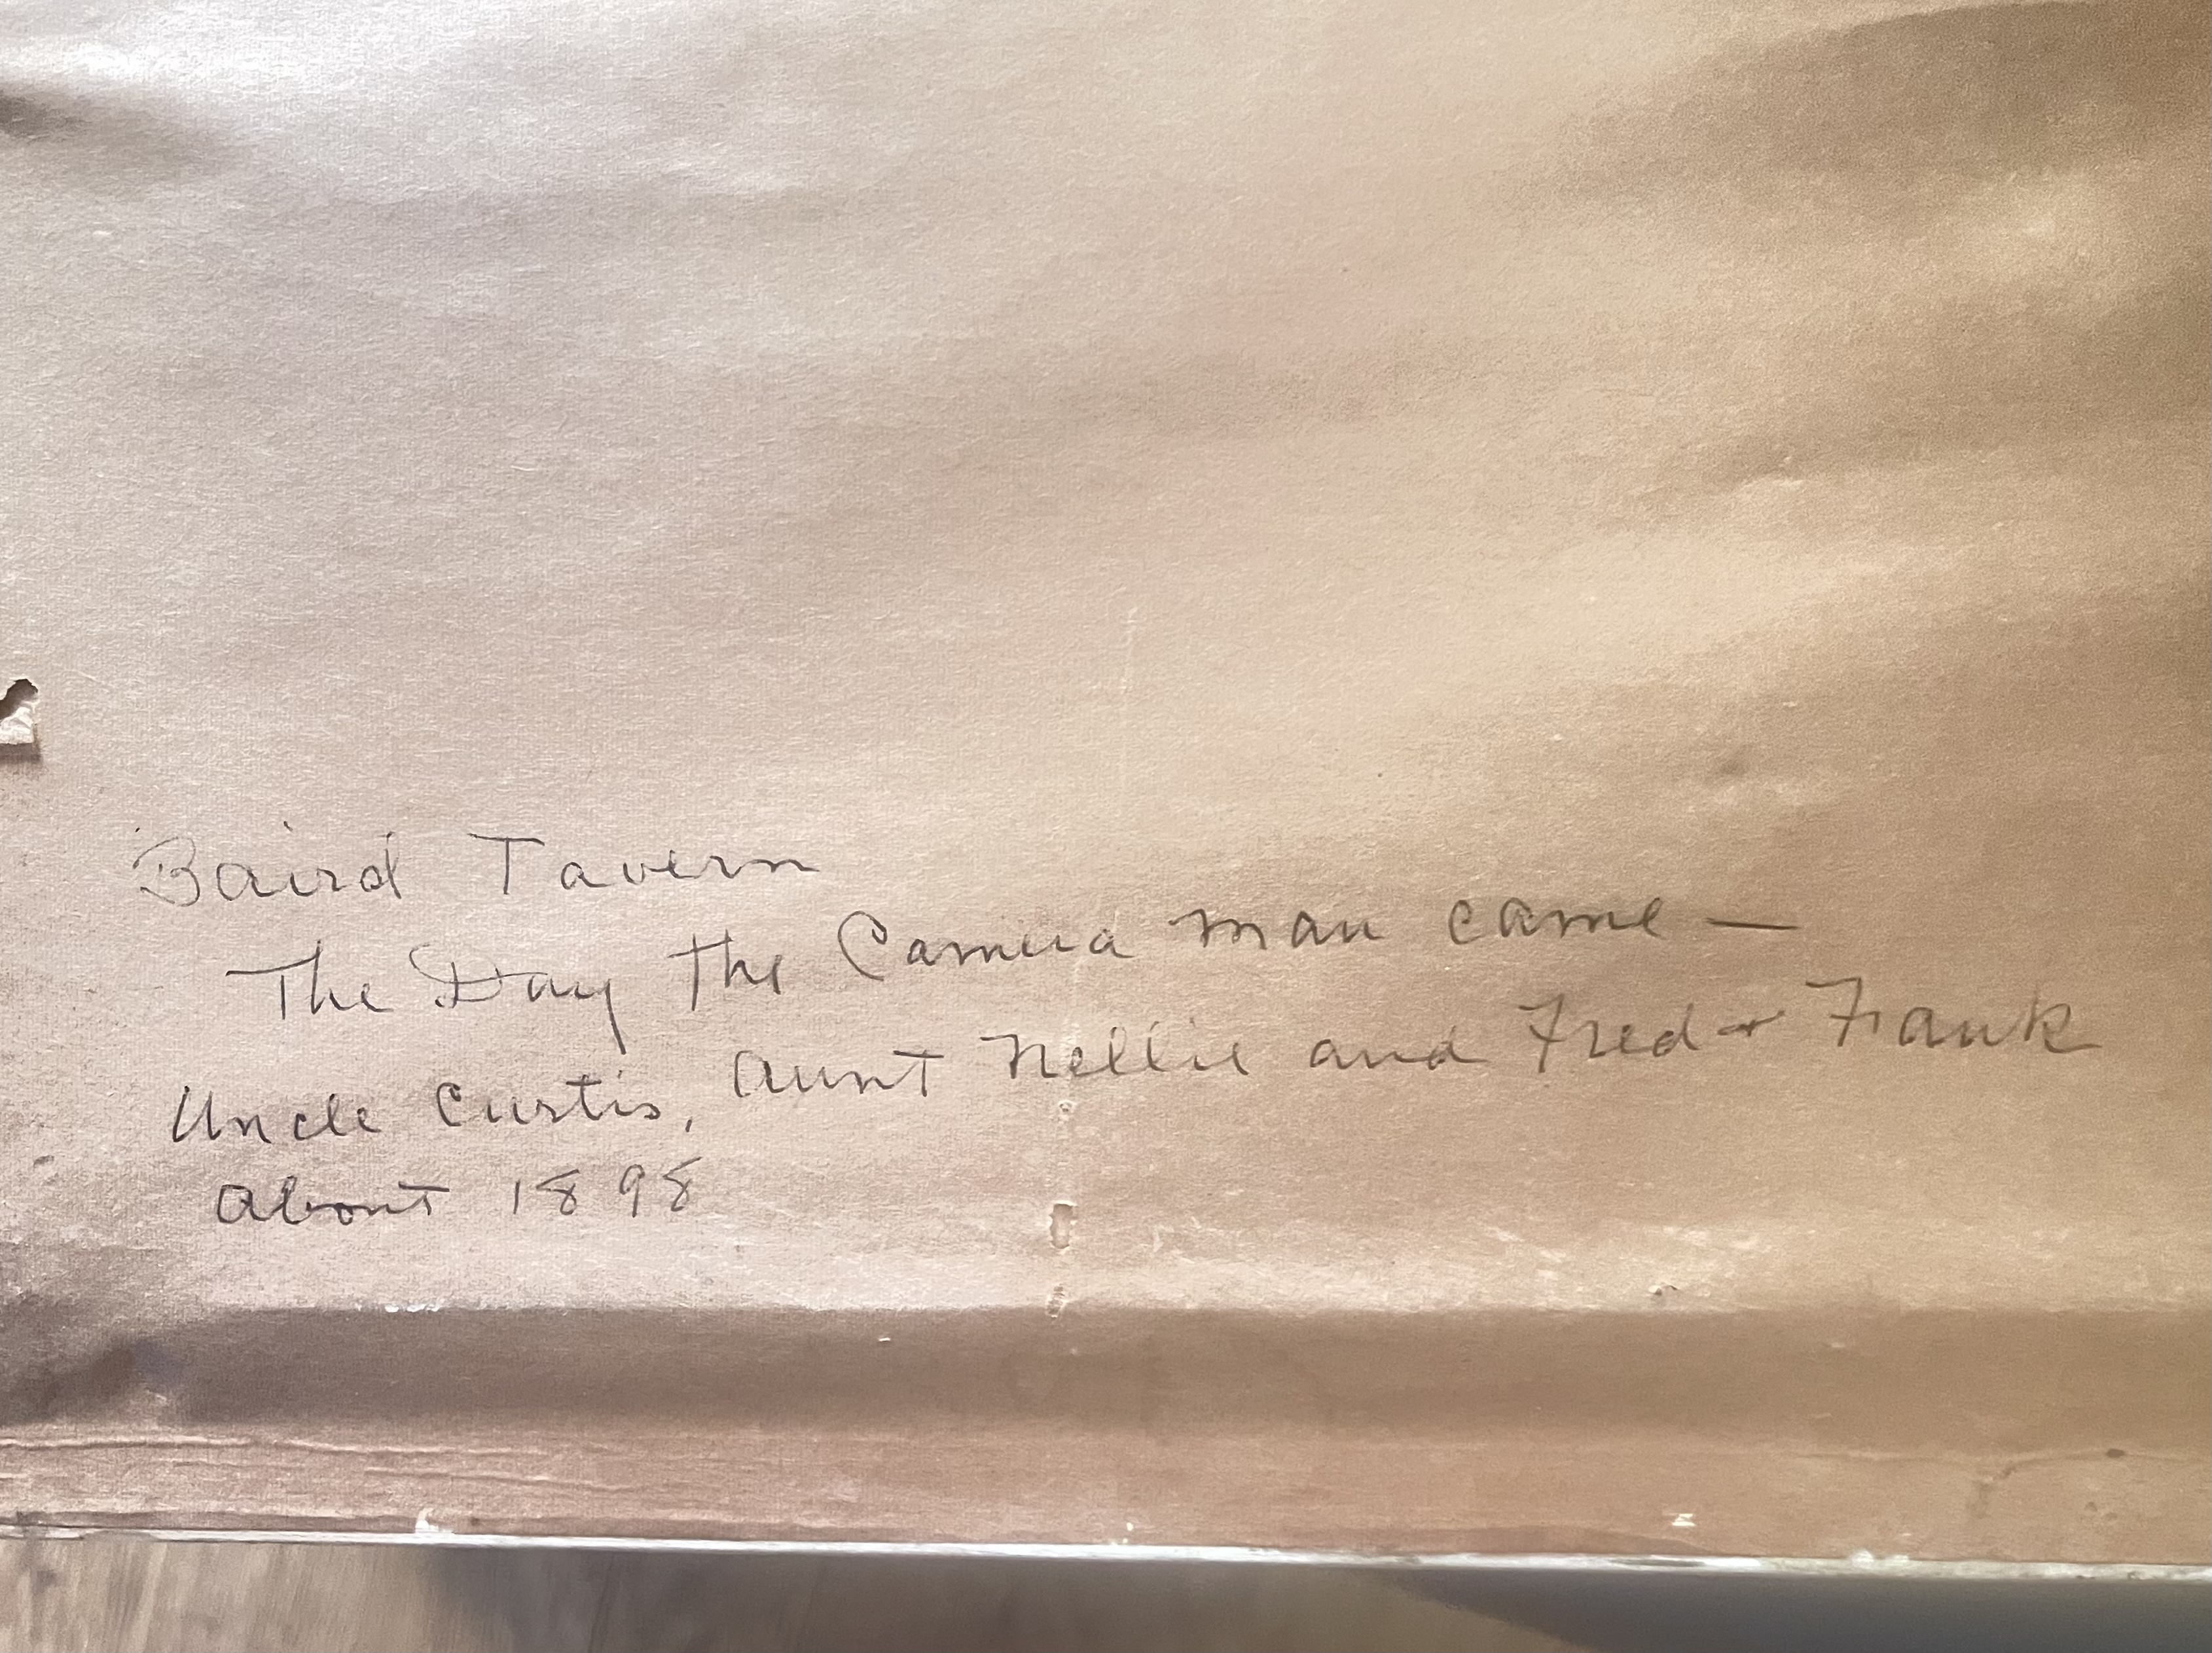 Baird Tavern
The Day the Camera man came —
Uncle Curtis, Aunt Nellie and Fred + Frank
About 1898